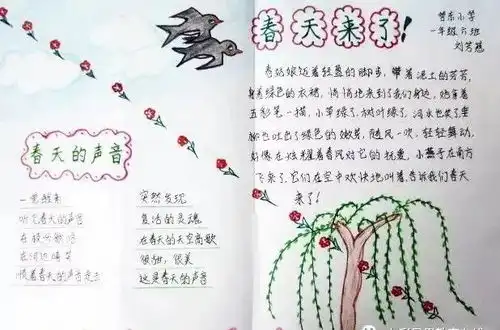 春天来了!
营东小学
一年级六班
春姑娘迈着轻盈的脚步,带着泥土的芳香,
身着绿色的衣裙,悄悄地来到了我们身边,她拿着
五彩笔一描,小草绿了,树叶绿了,河水也笑了,垂
柳也吐出了绿色的嫩芽,随风一吹,轻轻舞动,
好像在炫耀着春风对它的抚爱,小燕子在南方
飞来了,它们在空中欢快地叫着,告诉我们春天
来了!
春天的声音
一觉醒来
听见春天的声音
在枝间歌唱
在河边嬉笑
顺着春天的声音走去
突然发现
复活的灵魂
在春天的天空高歌
很甜,很美
这是春天的声音